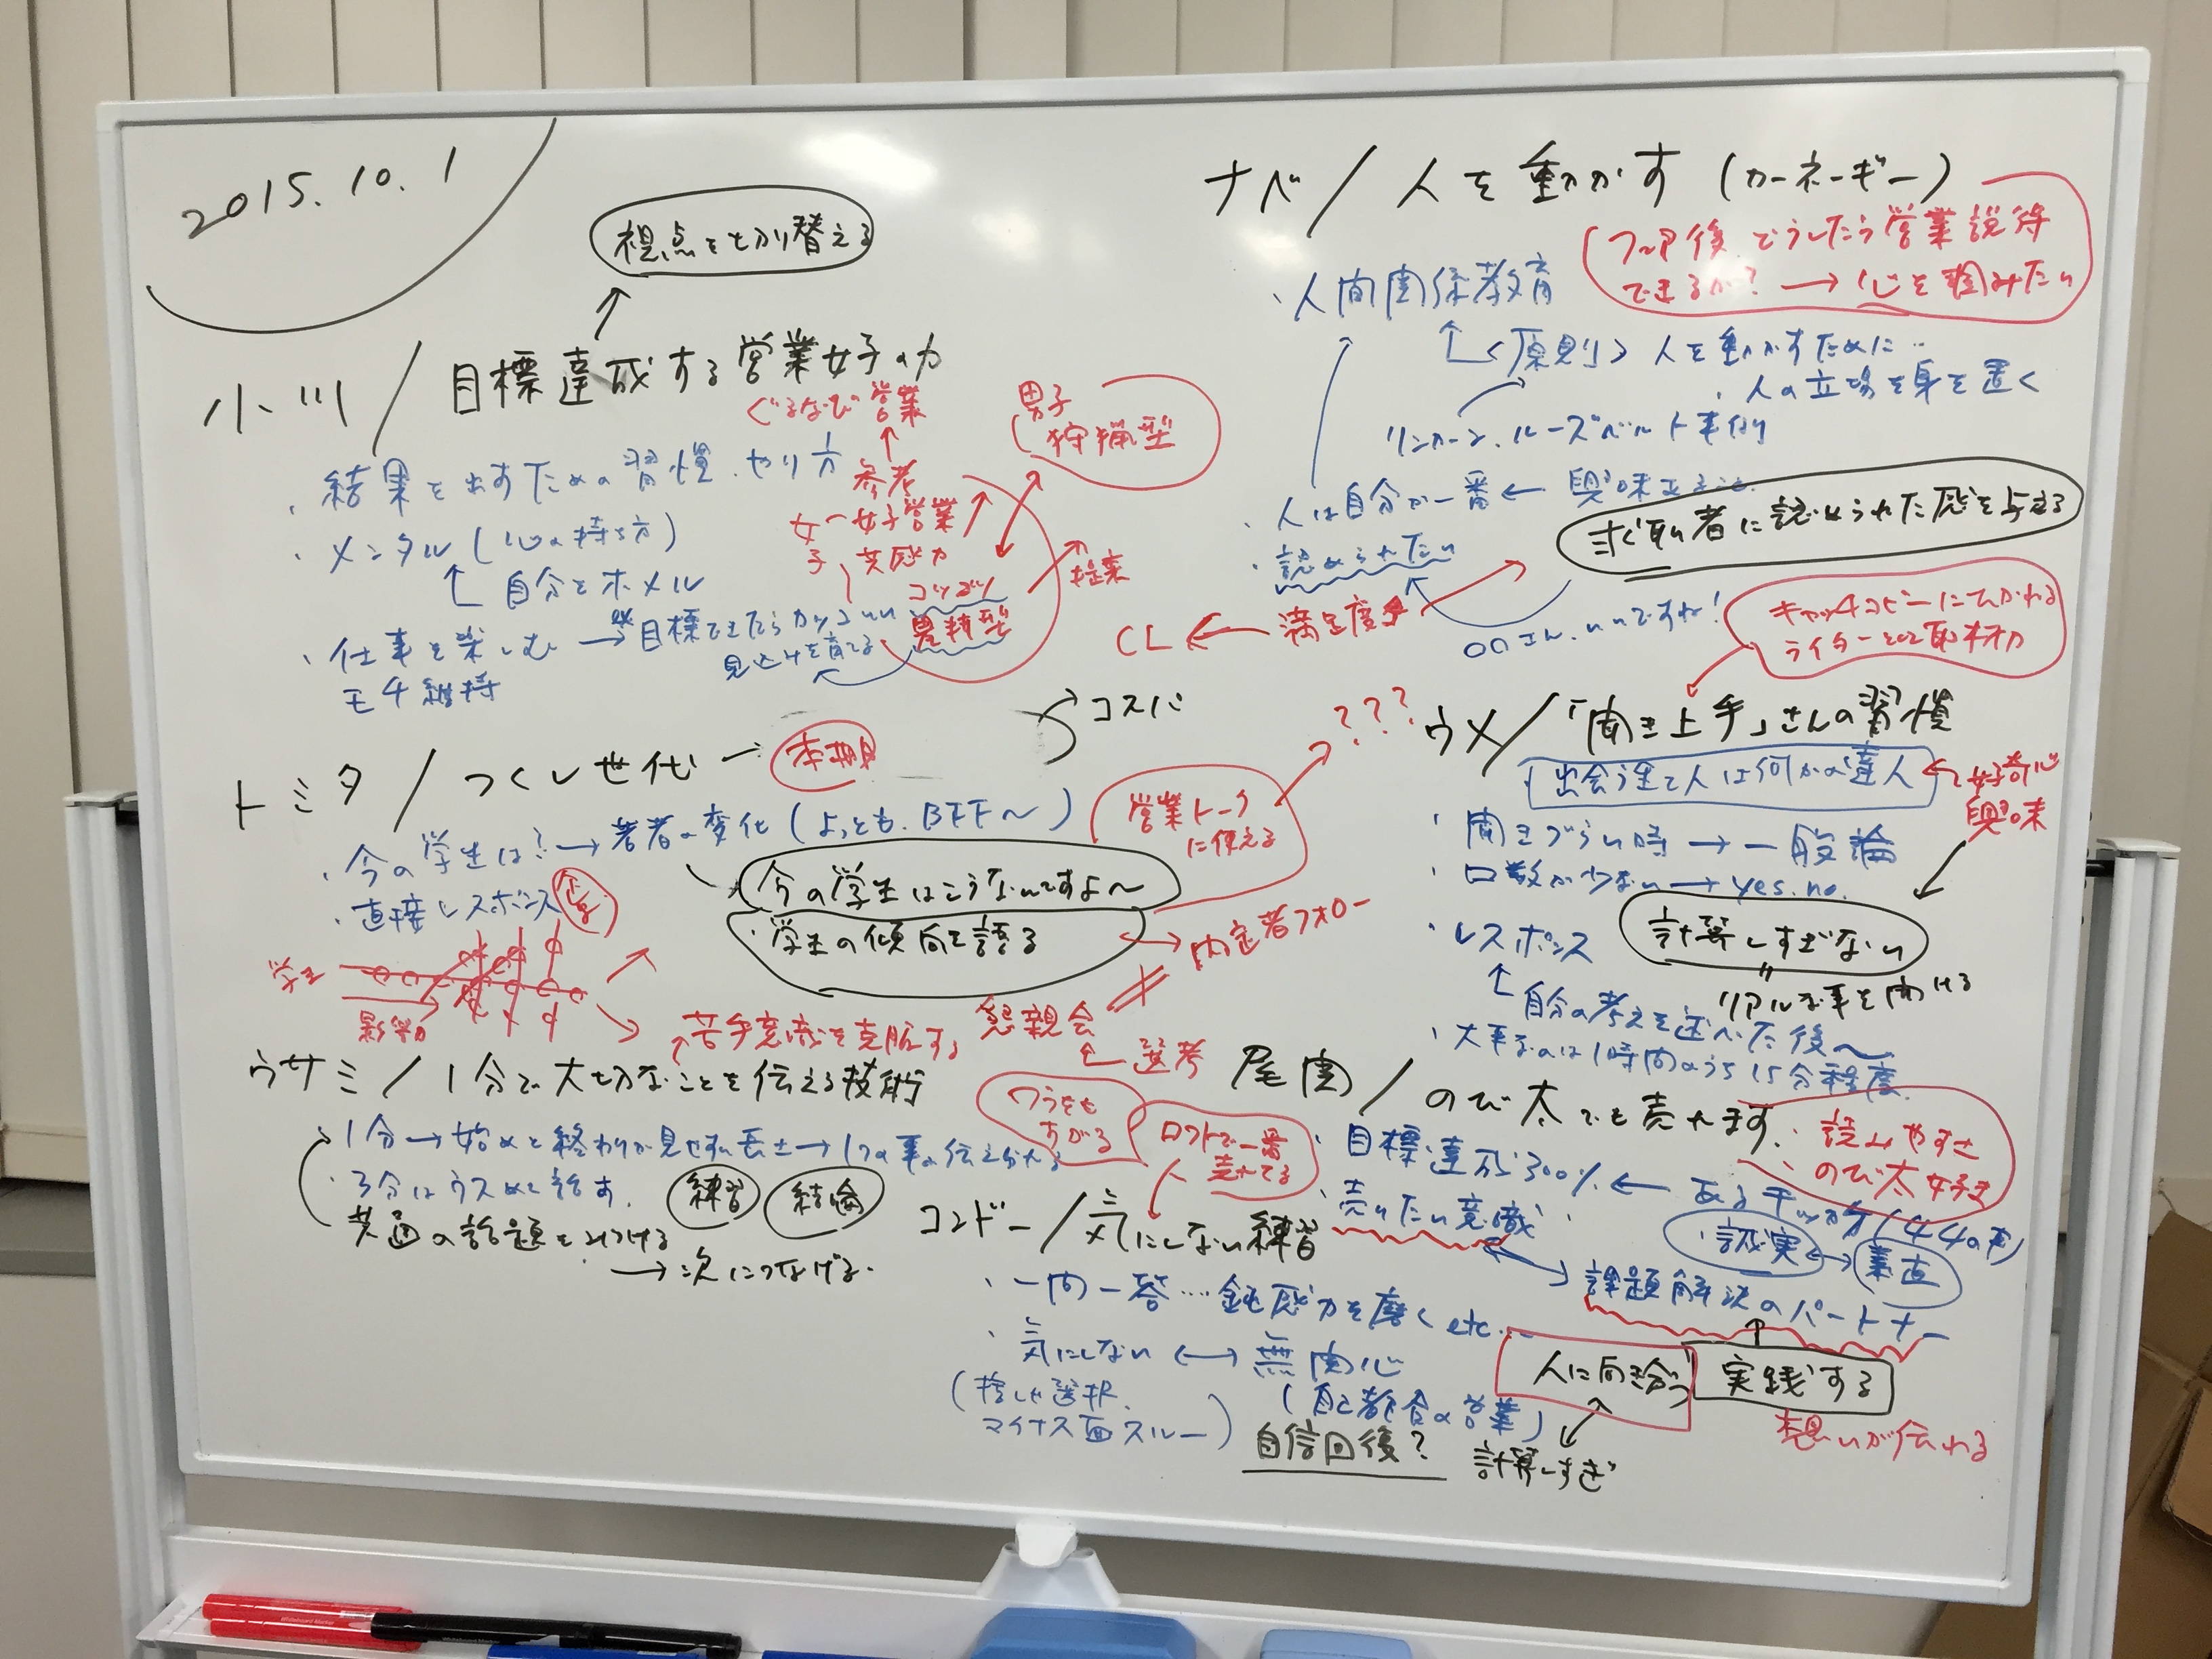 2015.10.1
視点を切り替える
小川/目標達成する営業女子の力
ぐるなび営業
男子
狩猟型
・結果を出すための習慣、やり方
参考
女子
女子営業
共感力
・メンタル(心の持ち方)
自分をホメル
コツコツ
農耕型
提案
・仕事を楽しむ→目標できたらカッコいい
見込みを育てる
モチ維持
トミタ/つくし世代
本期
コスパ
・今の学生は?→若者の変化(よっとも、BFF〜)
営業トーク
に使える
???
今の学生はこうなんですよ〜
・学生の傾向を語る
・直接レスポンス
内定者フォロー
懇親会
選考
学生
影響力
苦手意識を克服する
ウサミ/1分で大切なことを伝える技術
・1分→始めと終わりが見せる長さ→1つの事
・3分はウスめに話す。
練習
結論
共通の話題をみつける
→次につなげる。
ナベ/人を動かす(カーネギー)
フェア後、どうしたら営業説得
できるか?→心を掴みたい
・人間関係教育
<原則>人を動かすために…
・人の立場を身を置く
リンカーン、ルーズベルト事例
・人は自分が一番←興味あること
・認められたい
求職者に認められた感を与える
CL←満足度
○○さん、いいですね!
キャッチコピーにひかれる
ライターとして取材力
ウメ/「聞き上手」さんの習慣
出会う全て人は何かの達人
好奇心
興味
・聞きづらい時→一般論
・口数が少ない→yes.no.
計算しすぎない
・レスポンス
リアルな事を聞ける
自分の考えを述べた後〜
・大事なのは1時間のうち15分程度
尾関/のび太でも売れます。
・読みやすさ
のび太好き
・目標達成300%←
・売りたい意識
・誠実
素直
課題解決のパートナー
人に向き合う
実践する
想いが伝わる
計算しすぎ
ロフトで一番
売れてる
コンドー/気にしない練習
・一問一答…鈍感力を磨くetc…
・気にしない↔無関心
マイナス面スルー)
(自己都合の営業)
自信回後?